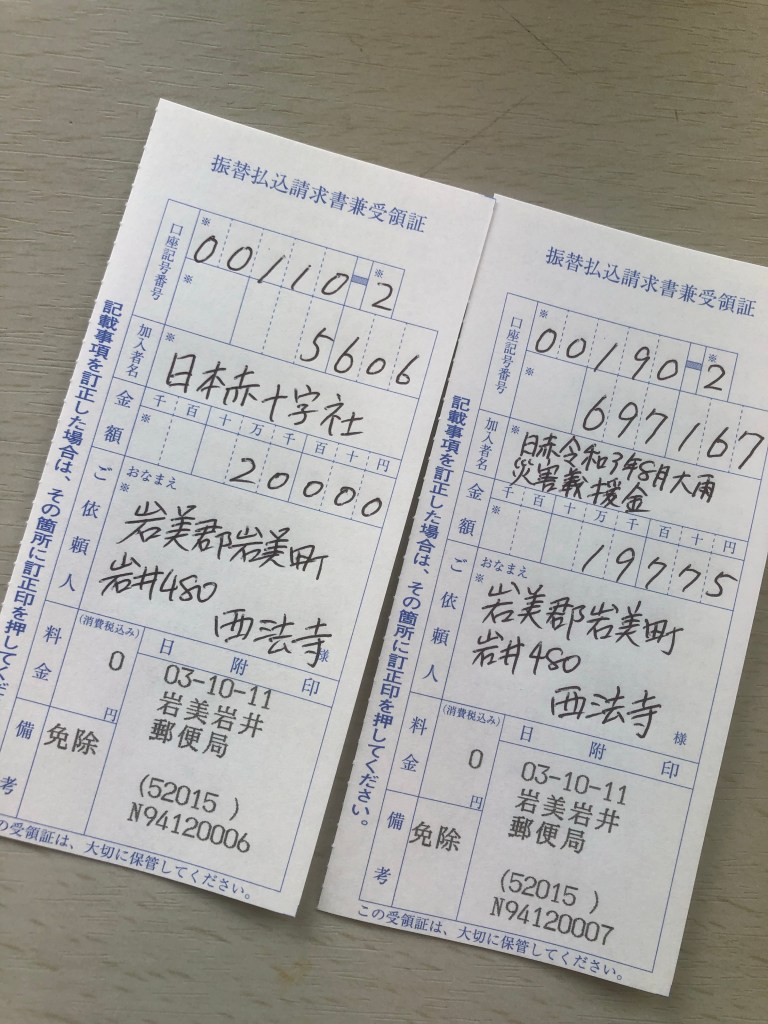 振替払込請求書兼受領証
口座記号番号
※
00110-2
※
※
5606
加入者名
※
日本赤十字社
金額
千百十万千百十円
※
20000
ご依頼人
おなまえ
※
岩美郡岩美町
岩井480
西法寺
様
料金
(消費税込み)
0
円
日附印
03-10-11
岩美岩井
郵便局
(52015 )
N94120006
備考
免除
記載事項を訂正した場合は、その箇所に訂正印を押してくだ
の受領証は、大切に保管してください。
振替払込請求書兼受領証
口座記号番号
※
00190-2
※
※
697167
加入者名
※
日赤令和3年8月大雨
災害義援金
金額
千百十万千百十円
※
19775
ご依頼人
おなまえ
※
岩美郡岩美町
岩井480
西法寺
様
料金
(消費税込み)
0
円
日附印
03-10-11
岩美岩井
郵便局
(52015 )
N94120007
備考
免除
記載事項を訂正した場合は、その箇所に訂正印を押してください。
この受領証は、大切に保管してください。